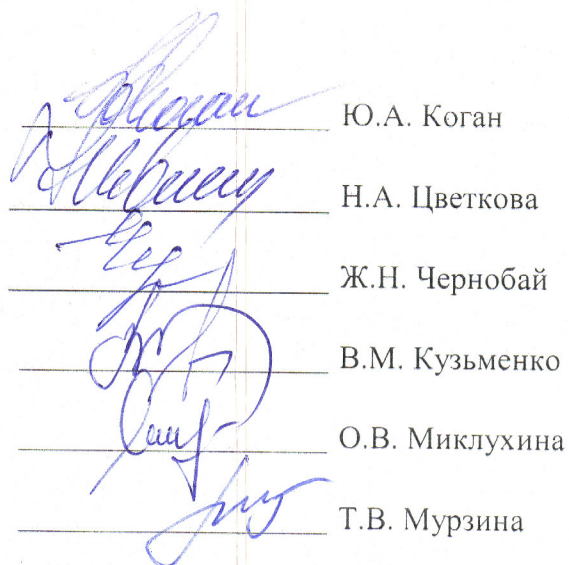 Ю.А. Коган
Н.А. Цветкова
Ж.Н. Чернобай
В.М. Кузьменко
О.В. Миклухина
Т.В. Мурзина